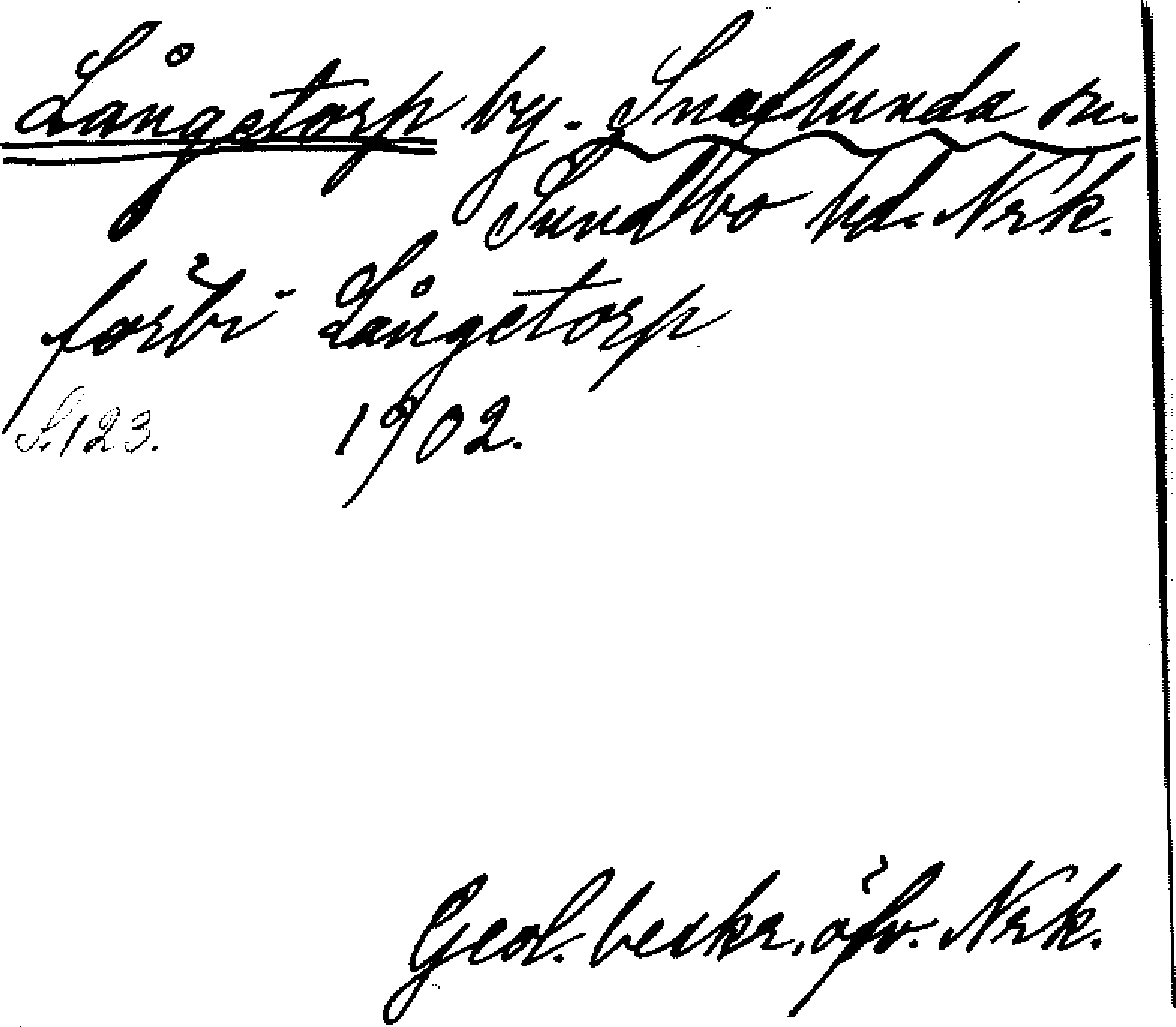 Långetorp by. Snaflunda sn.
Sundbo hd. Nrk.
förbi Långetorp
S. 123. 1902.
Geol. beskr. öfv. Nrk.